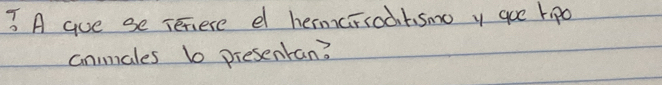 ? A que se refiere el hermafroditismo y que tipo
animales lo presentan?